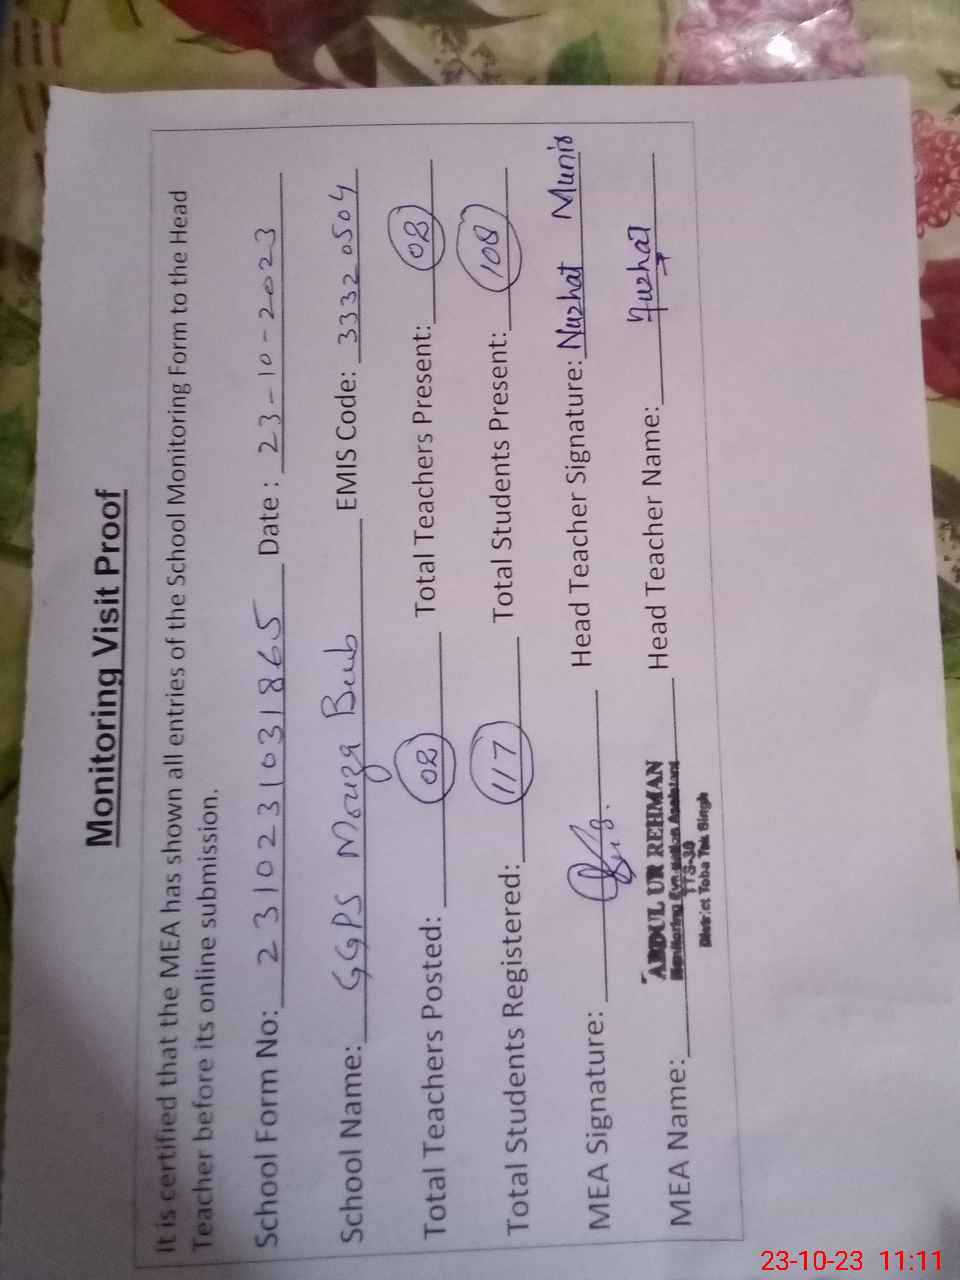 Monitoring Visit Proof
It is certified that the MEA has shown all entries of the School Monitoring Form to the Head
Teacher before its online submission.
School Form No: 2310231031865 Date : 23-10-2023
School Name: GGPS Mouza Beeb EMIS Code: 33320504
Total Teachers Posted: 02 Total Teachers Present: 02
Total Students Registered: 117 Total Students Present: 108
MEA Signature: Head Teacher Signature: Nuzhat Munir
MEA Name: ABDUL UR REHMAN Head Teacher Name: Nuzhat
Monitoring Evaluation Assistant
TTS-30
District Toba Tek Singh
23-10-23 11:11